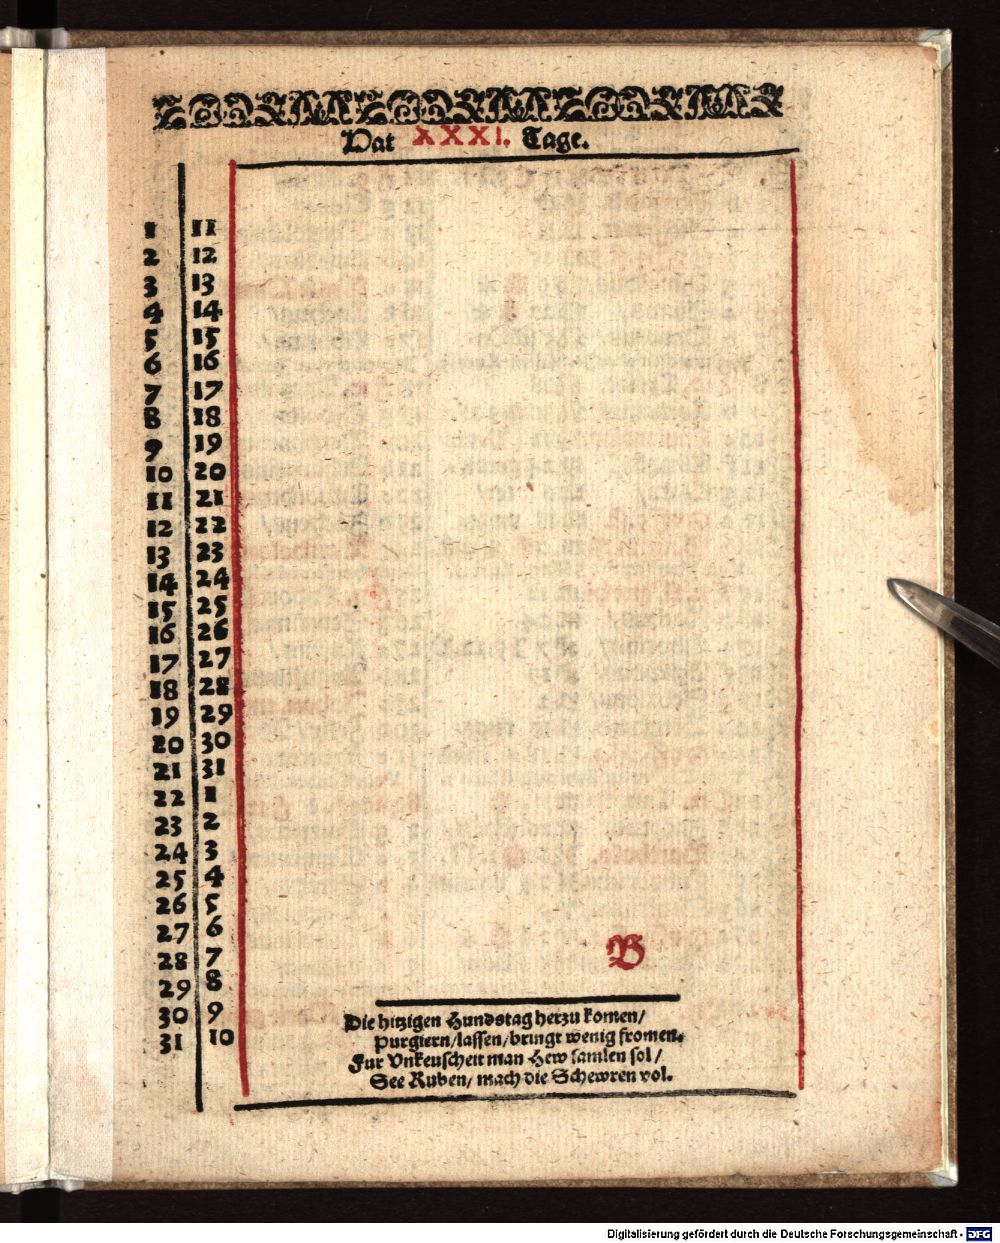 Hat XXXI. Tage.
1 11
2 12
3 13
4 14
5 15
6 16
7 17
8 18
9 19
10 20
11 21
12 22
13 23
14 24
15 25
16 26
17 27
18 28
19 29
20 30
21 31
22 1
23 2
24 3
25 4
26 5
27 6
28 7
29 8
30 9
31 10
B
Die hitzigen Hundstag herzu komen/
Purgiern/lassen/bringt wenig fromen.
Fur Vnkeuscheit man Hew samlen sol/
See Ruben/ mach die Schewren vol.
Digitalisierung gefördert durch die Deutsche Forschungsgemeinschaft - DFG